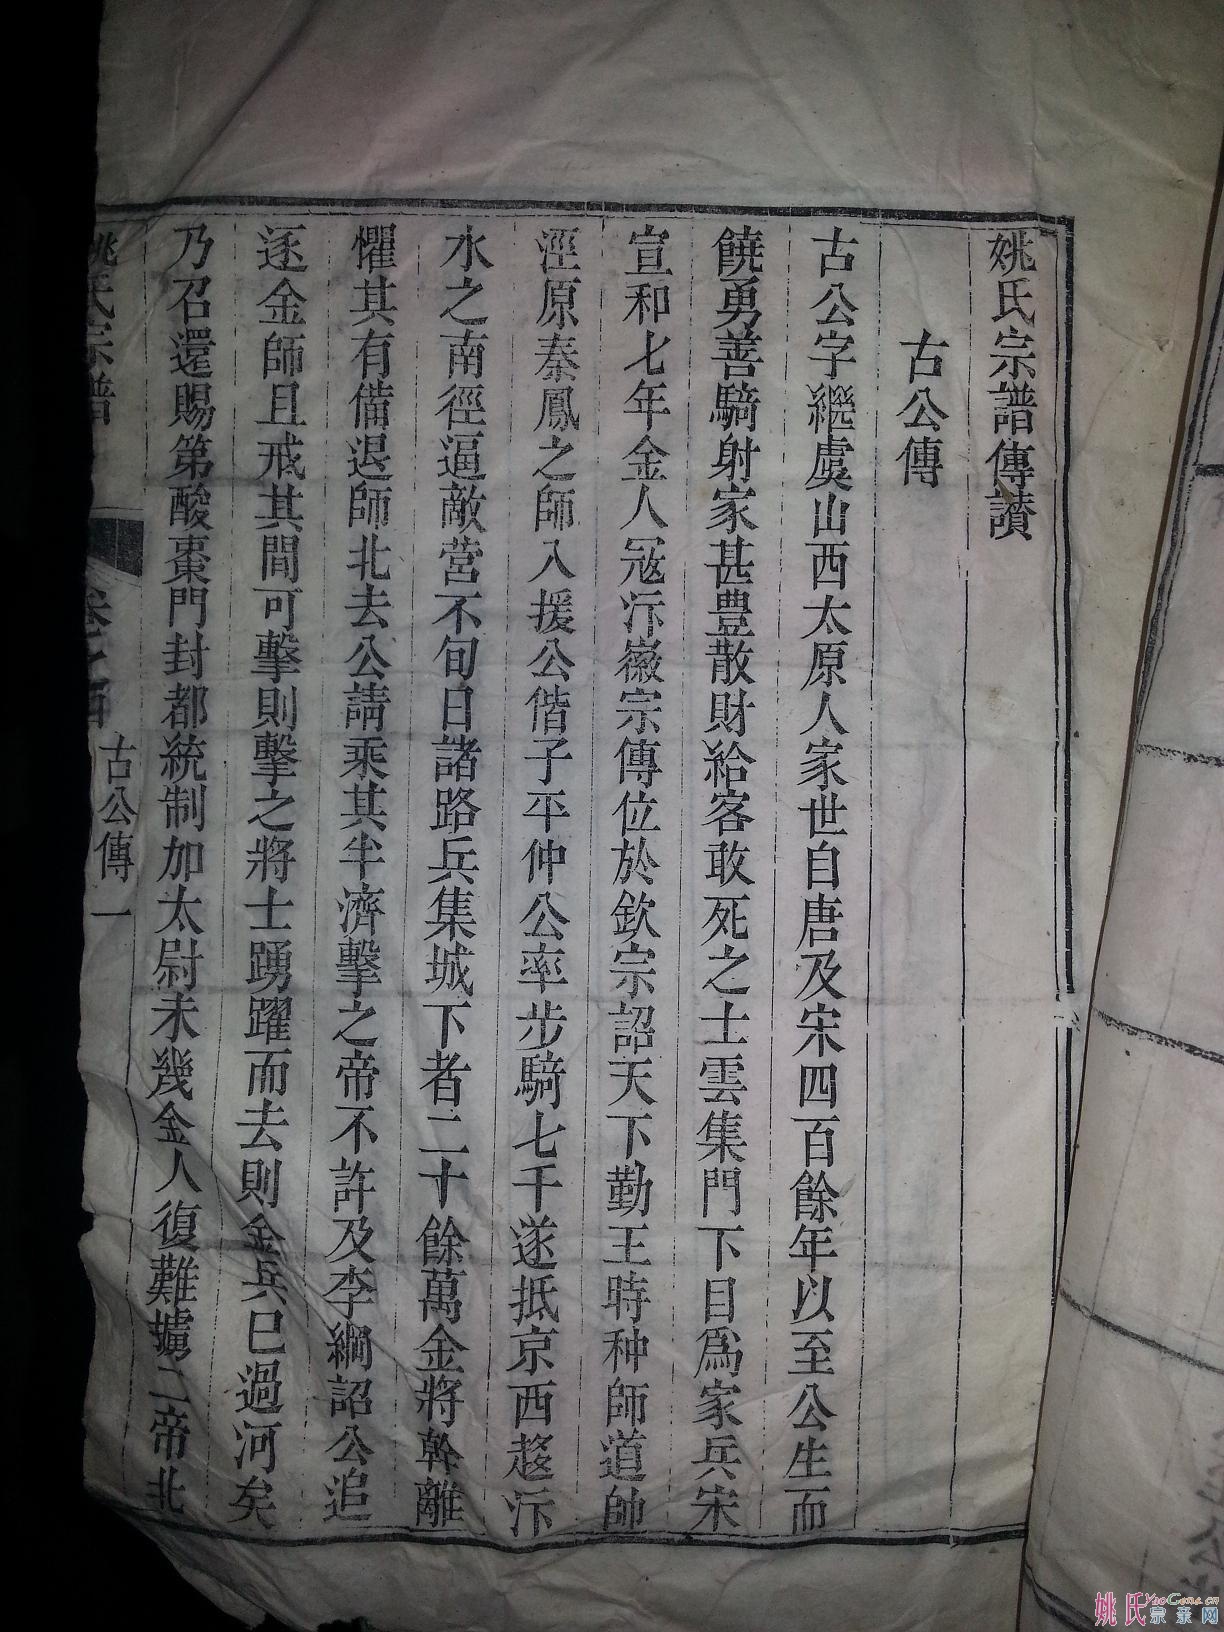 姚氏宗譜傳讃
古公傳
古公字繼虞山西太原人家世自唐及宋四百餘年以至公生而
饒勇善騎射家甚豊散財給客敢死之士雲集門下目爲家兵宋
宣和七年金人冦汴徽宗傳位於欽宗詔天下勤王時种師道帥
涇原秦鳳之師入援公偕子平仲公率步騎七千遂抵京西趍汴
水之南徑逼敵营不旬日諸路兵集城下者二十餘萬金將幹離
懼其有備退師北去公請乘其半濟擊之帝不許及李綱詔公追
逐金師且戒其間可擊則擊之將士踴躍而去則金兵已過河矣
乃召還賜第酸棗門封都統制加太尉未幾金人復難擄二帝北
姚氏宗譜
卷之
古公傳
一
姚氏宗亲网
YaoGens.cn